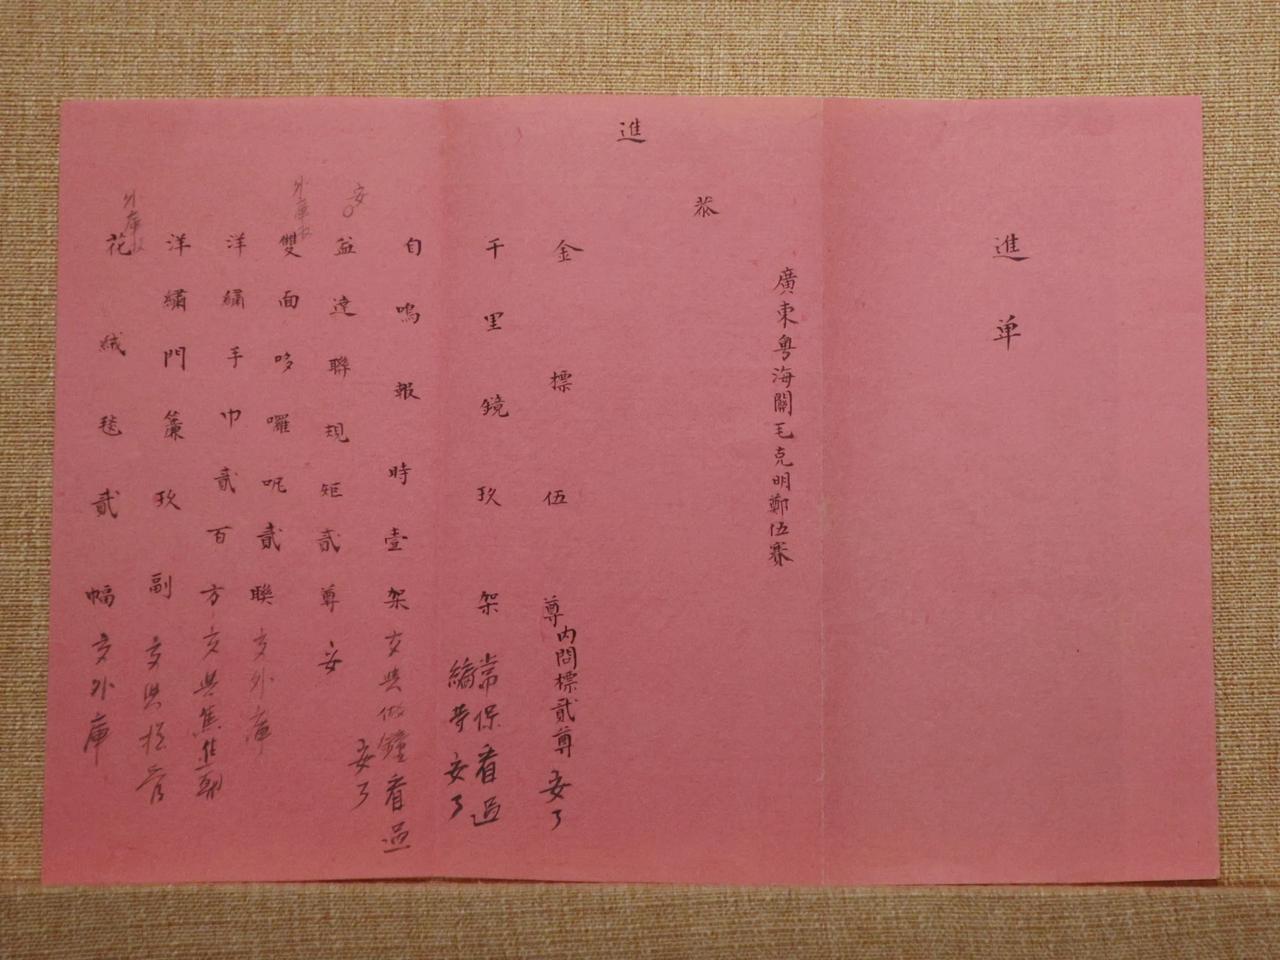 進單
廣東粵海關毛克明鄭伍賽
恭
進
金標伍尊內問標貳尊安了
千里鏡玖架常保看過
安了
自鳴報時壹架交與做鐘看過
安了
安
益達聯規矩貳尊安
外庫收
雙面哆囉呢貳聯交外庫
洋繡手巾貳百方交與焦進朝
洋繡門簾玖副交與
外庫收
花絨毯貳幅交外庫